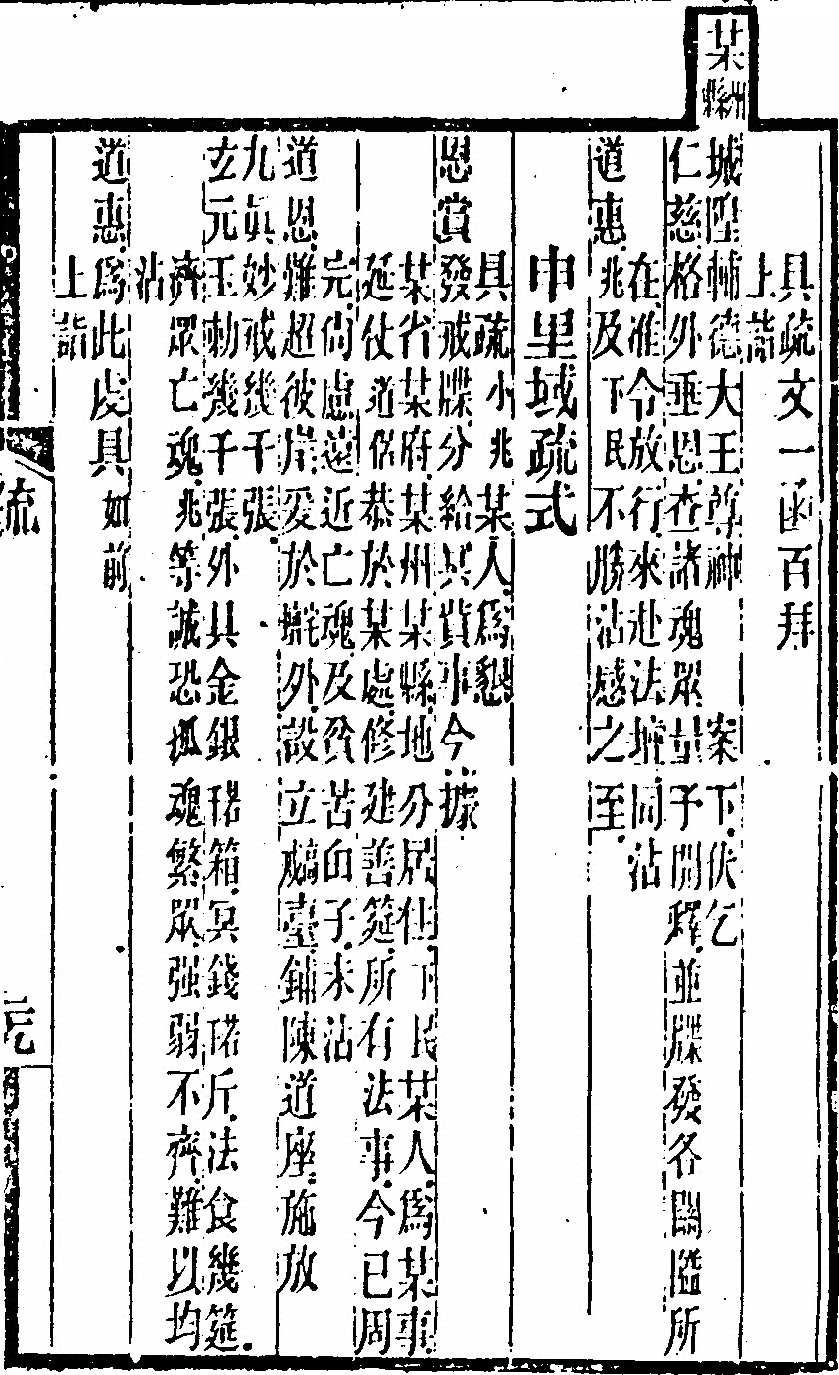 具疏文一函百拜
上詣
某州縣城隍輔德大王尊神 案下伏乞
仁慈格外垂恩查諸魂眾量予開釋並牒發各關隘所
在准令放行來赴法壇同沾
道惠兆及下民不勝沾感之至
申里域疏式
具疏小兆某人為懇
恩賞發戒牒分給冥貲事今據
某省某府某州某縣地分居住下民某人為某事
延仗道侶恭於某處修建善筵所有法事今已周
完尚慮遠近亡魂及貧苦由子未沾
道恩難超彼岸爰於壇外設立戒臺鋪陳道座施放
九真妙戒幾千張
玄元玉勅幾千張外具金銀 箱冥錢 斤法食幾筵
濟眾亡魂兆等誠恐孤魂繁眾强弱不齊難以均
沾
道惠為此虔具如前
上詣
疏